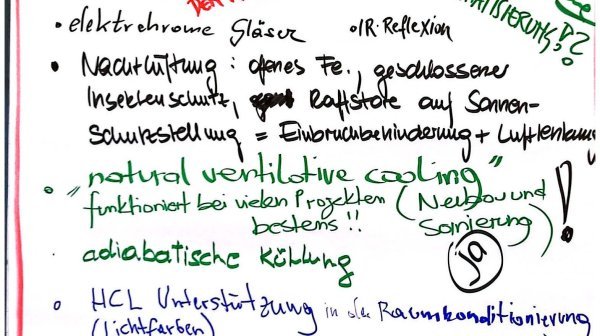 • elektrochrome Gläser • IR-Reflexion
• Nachtlüftung : offenes Fe., geschlossener
Insektenschutz, Raffstore auf Sonnen-
schutzstellung = Einbruchbehinderung + Luftlenkung
• "natural ventilative cooling"
funktioniert bei vielen Projekten (Neubau und
bestens !! Sanierung) !
• adiabatische Kühlung ja
• HCL Unterstützung in der Raumkonditionierung
(Lichtfarben)